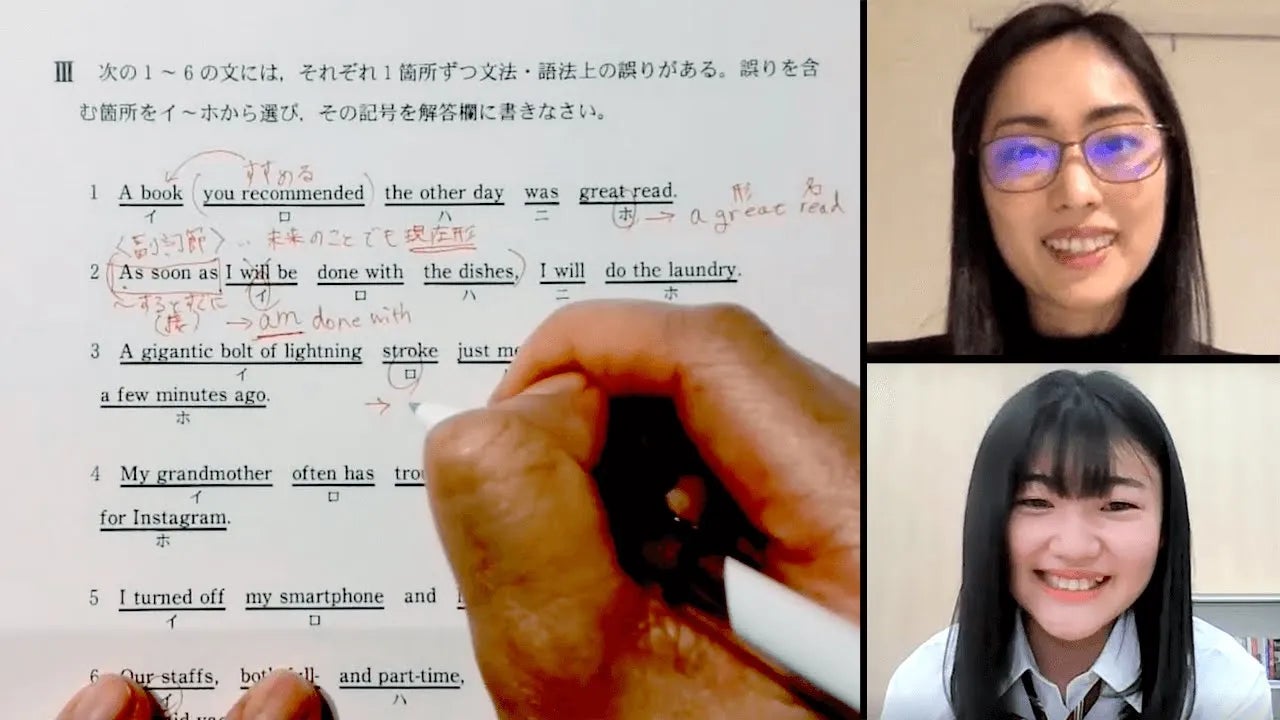 III 次の1～6の文には，それぞれ1箇所ずつ文法・語法上の誤りがある。誤りを含
む箇所をイ～ホから選び，その記号を解答欄に書きなさい。
すすめる
1 A book (you recommended) the other day was great read.
イ ロ ハ ニ ホ → a great read
形 名
〈副詞節〉… 未来のことでも現在形
2 As soon as I will be done with the dishes,) I will do the laundry.
イ ロ ハ ニ ホ
～するとすぐに
(接) → am done with
3 A gigantic bolt of lightning stroke just
イ ロ
a few minutes ago. →
ホ
4 My grandmother often has
イ ロ
for Instagram.
ホ
5 I turned off my smartphone and
イ ロ
6 Our staffs, and part-time,
イ ハ